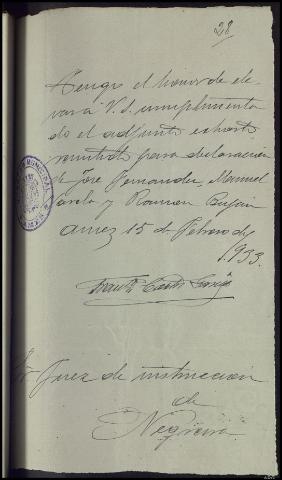 28
Tengo el honor de ele-
var a V.S. cumplimenta-
do el adjunto exhorto
remitido para declaracion
José Fernandez, Manuel
y Ramon
Amez 15 de Febrero de
1.933.
Sr. Juez de instruccion
de
Negreira.